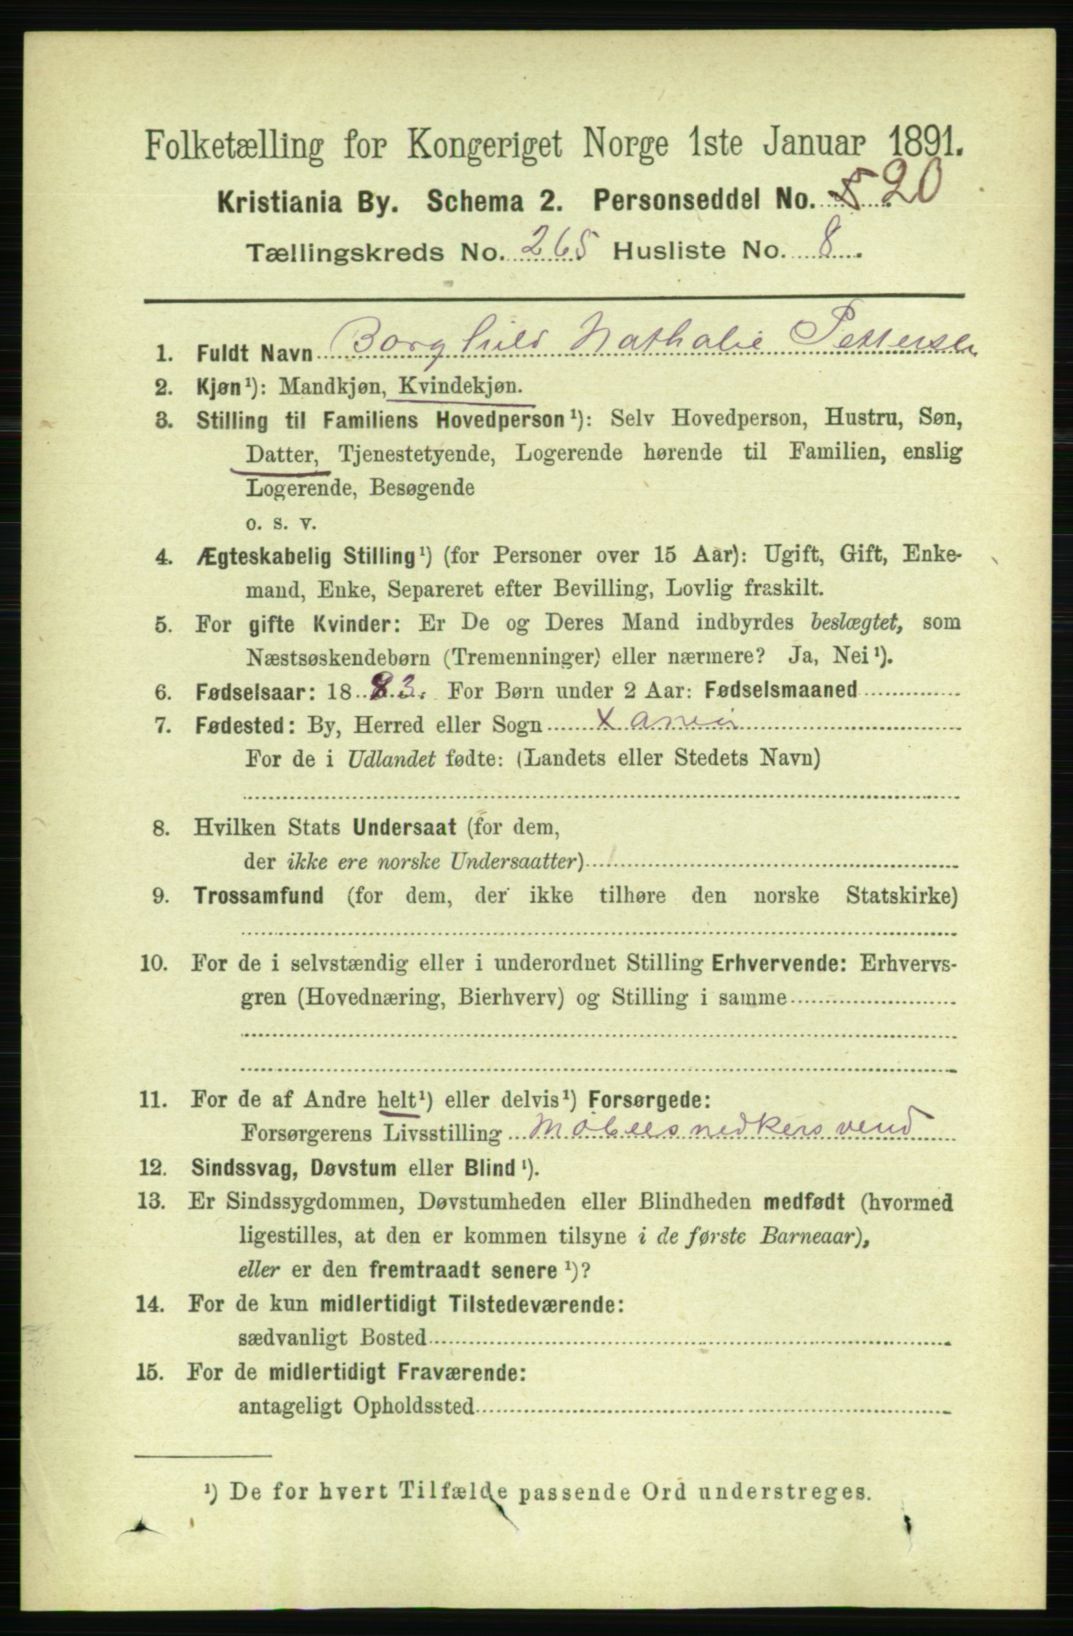 Folketælling for Kongeriget Norge 1ste Januar 1891.
Kristiania By. Schema 2. Personseddel No. 5 20
Tællingskreds No. 265 Husliste No. 8.
1. Fuldt Navn Borghild Nathalie Pettersen
2. Kjøn¹): Mandkjøn, Kvindekjøn.
3. Stilling til Familiens Hovedperson¹): Selv Hovedperson, Hustru, Søn,
Datter, Tjenestetyende, Logerende hørende til Familien, enslig
Logerende, Besøgende
o. s. v.
4. Ægteskabelig Stilling¹) (for Personer over 15 Aar): Ugift, Gift, Enke-
mand, Enke, Separeret efter Bevilling, Lovlig fraskilt.
5. For gifte Kvinder: Er De og Deres Mand indbyrdes beslægtet, som
Næstsøskendebørn (Tremenninger) eller nærmere? Ja, Nei¹).
6. Fødselsaar: 1883. For Børn under 2 Aar: Fødselsmaaned
7. Fødested: By, Herred eller Sogn
For de i Udlandet fødte: (Landets eller Stedets Navn)
8. Hvilken Stats Undersaat (for dem,
der ikke ere norske Undersaatter)
9. Trossamfund (for dem, der ikke tilhøre den norske Statskirke)
10. For de i selvstændig eller i underordnet Stilling Erhvervende: Erhvervs-
gren (Hovednæring, Bierhverv) og Stilling i samme
11. For de af Andre helt¹) eller delvis¹) Forsørgede:
Forsørgerens Livsstilling Möbelsnedkersvend
12. Sindssvag, Døvstum eller Blind¹).
13. Er Sindssygdommen, Døvstumheden eller Blindheden medfødt (hvormed
ligestilles, at den er kommen tilsyne i de første Barneaar),
eller er den fremtraadt senere¹)?
14. For de kun midlertidigt Tilstedeværende:
sædvanligt Bosted
15. For de midlertidigt Fraværende:
antageligt Opholdssted
¹) De for hvert Tilfælde passende Ord understreges.